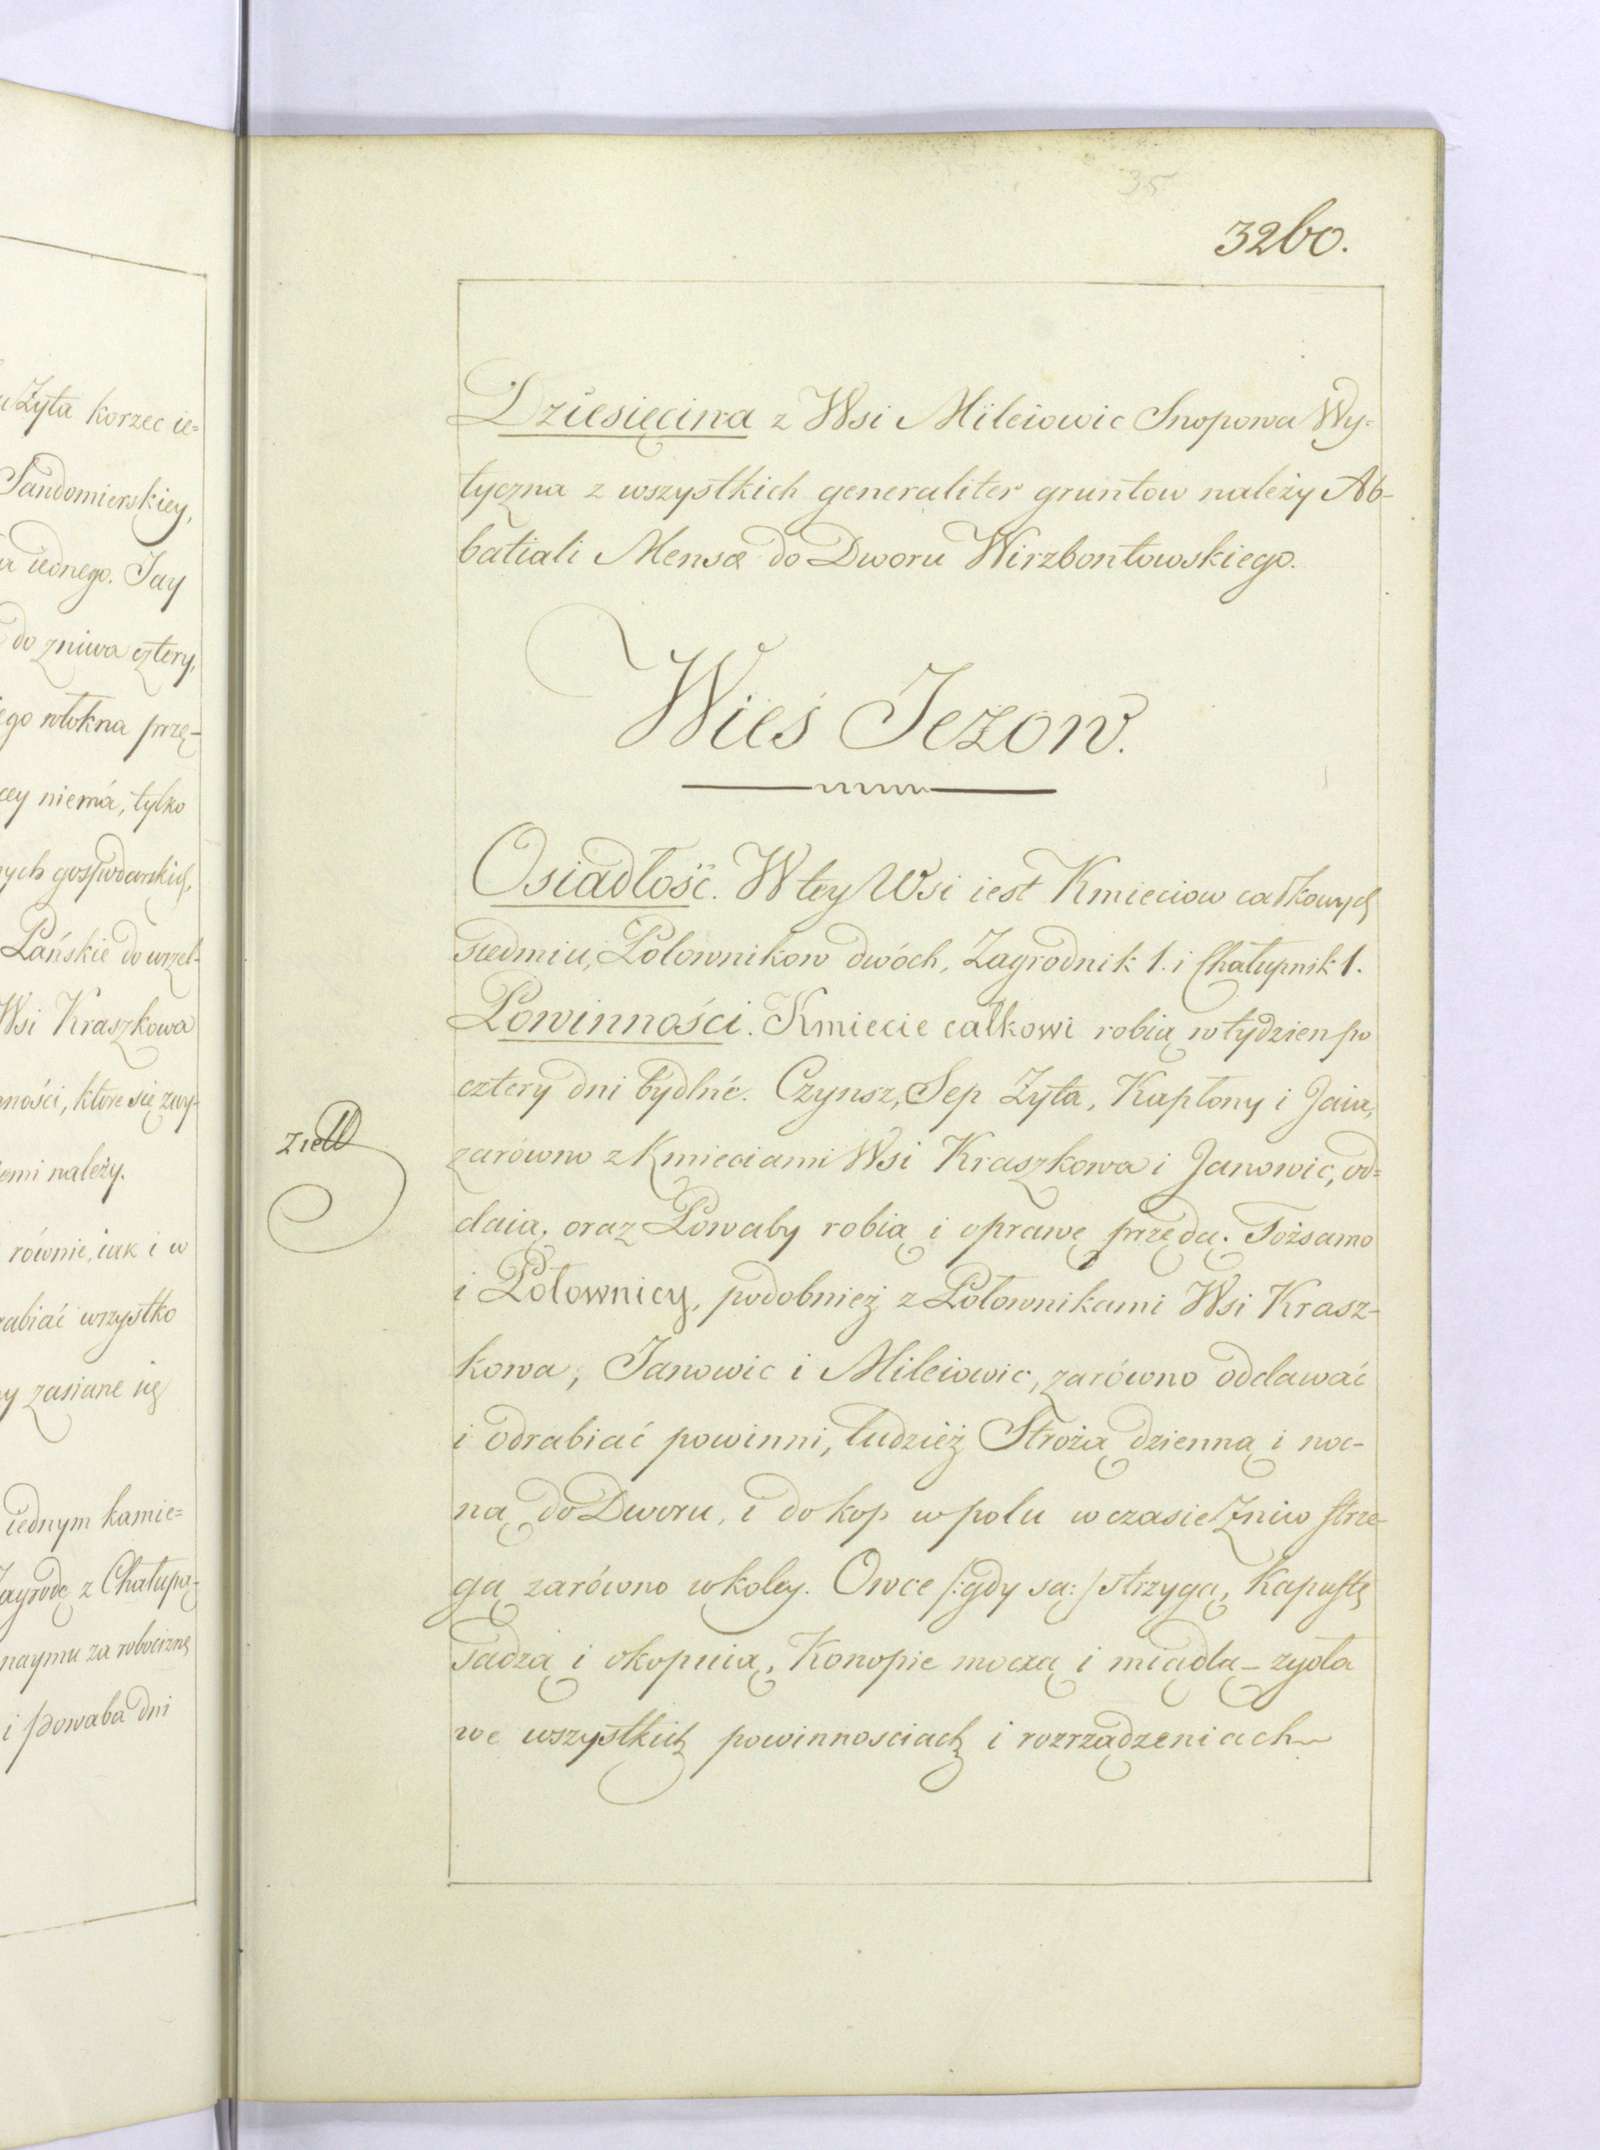 Żyta korzec ie=
Sandomierskiey,
iednego. Jay
do zniwa cztery,
włokna przę-
niemá, tylko
gospodarskich,
Pańskie do
Wsi Kraszkowa
które się zwy-
należy.
równie, iak i w
wszystko
zasiane
iednym kamie=
z Chałupą
naymu za robociznę
i powaba dni
35
3260.
Dziesięcina z Wsi Mileiowic Snopowa Wy=
tyczna z wszystkich generaliter gruntow należy Ab-
batiali Mensæ do Dworu Wirzbontowskiego.
Wieś Jezow.
Osiadłość. W tey Wsi iest Kmieciow całkowych
siedmiu, Połownikow dwóch, Zagrodnik 1. i Chałupnik 1.
Powinności. Kmiecie całkowi robią w tydzien po
cztery dni bydlné. Czynsz, Sep Zyta, Kapłony i Jaia,
zarówno z Kmieciami Wsi Kraszkowa i Janowic, od=
daią, oraz Powaby robią i oprawę przędą. Tożsamo
i Połownicy, podobnież z Połownikami Wsi Krasz-
kowa, Janowic i Mileiowic, zarówno oddawać
i odrabiać powinni, tudzież Strożą dzienną i noc-
ną do Dworu, i do kop w polu w czasie Zniw strze-
gą zarówno w koley. Owce /:gdy są:/ strzygą, Kapustę
sadzą i okopuią, Konopie moczą i miądlą - zgoła
we wszystkich powinnosciach i rozrządzeniach